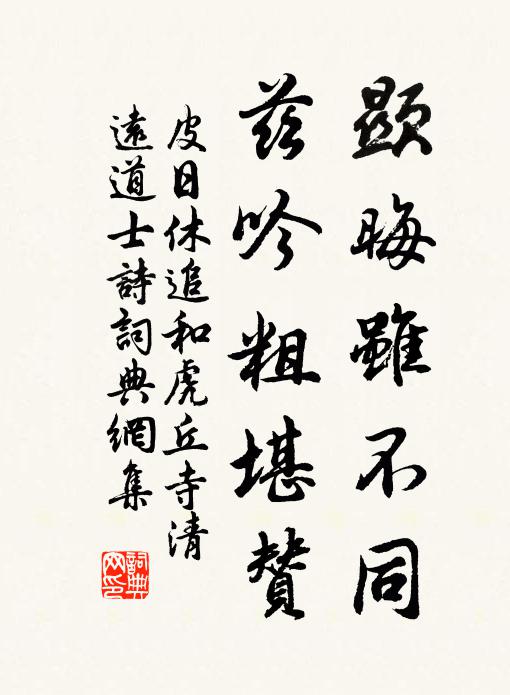 顯晦雖不同
茲吟粗堪贊
皮日休追和虎丘寺清
遠道士詩詞典網集
詞典
网印